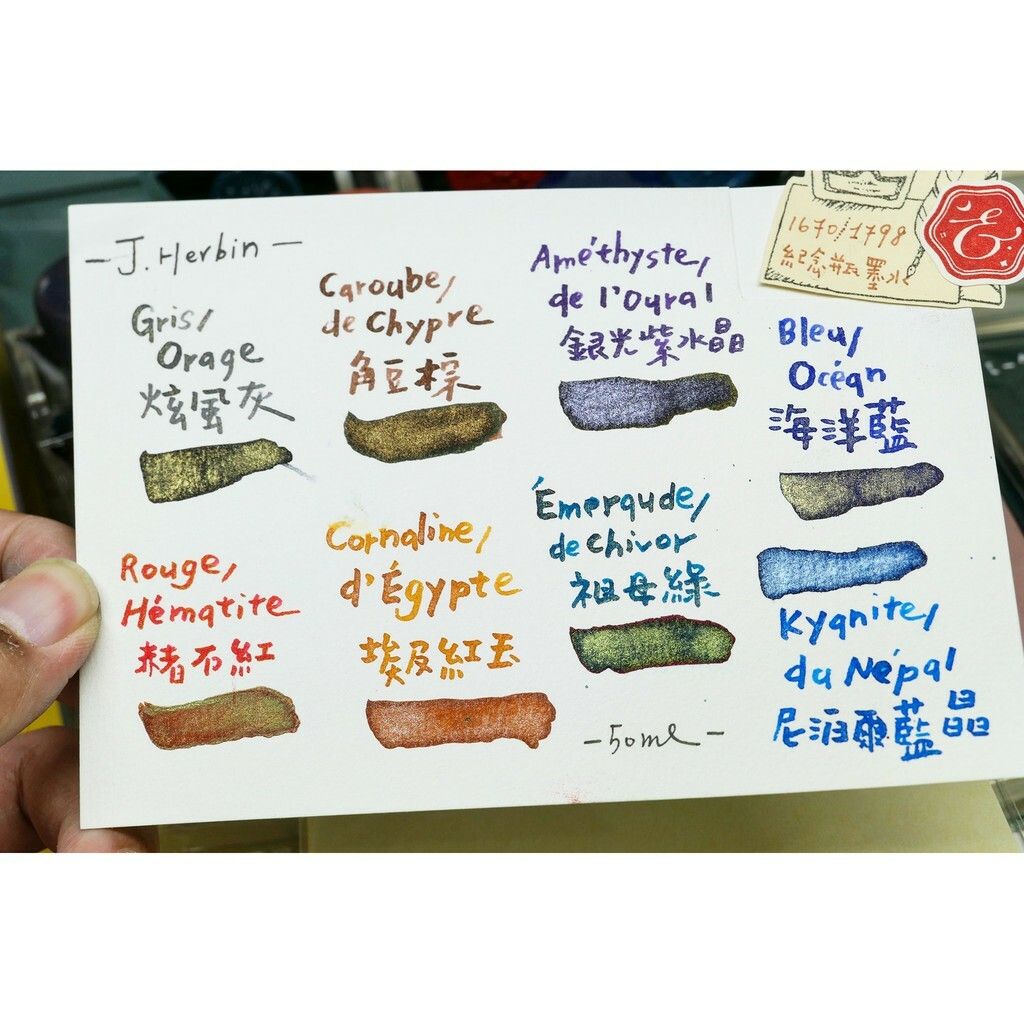 - J. Herbin -
1670/1798
紀念瓶墨水
Gris/
Orage
炫風灰
Caroube/
de Chypre
角豆棕
Améthyste/
de l'Oural
銀光紫水晶
Bleu/
Océan
海洋藍
Rouge/
Hématite
赭石紅
Cornaline/
d'Égypte
埃及紅玉
Émeraude/
de Chivor
祖母綠
Kyanite/
du Népal
尼泊爾藍晶
- 50ml -